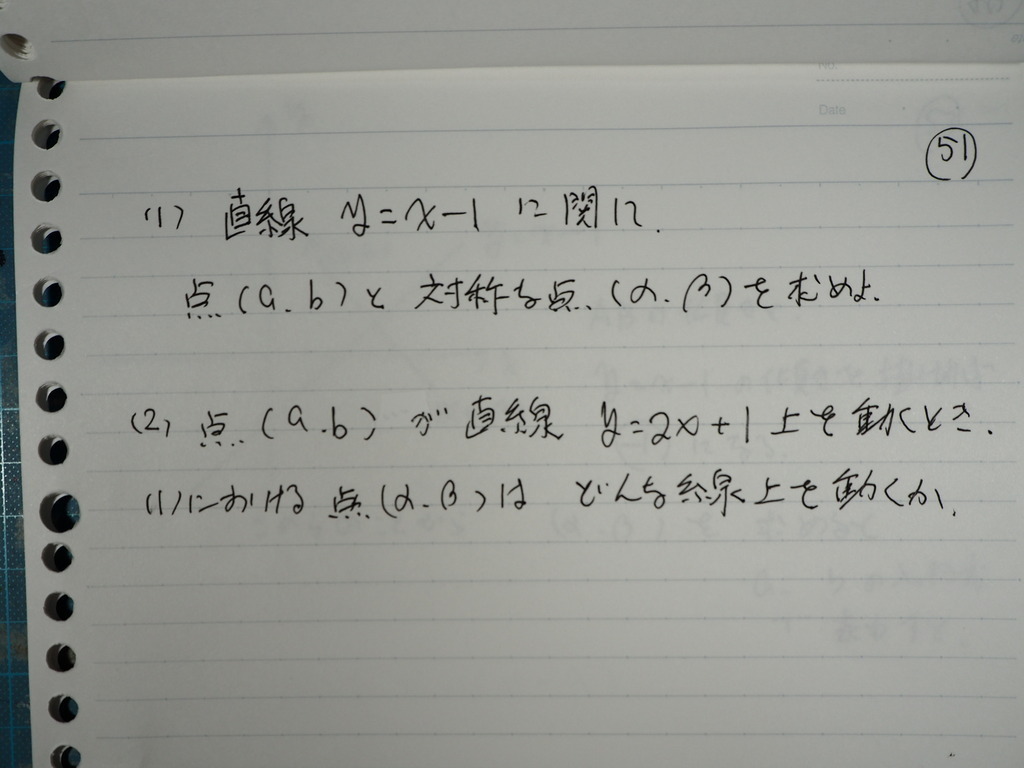 Date
51
(1) 直線 y=x-1 に関して、
点 (a.b) と 対称な点 (α.β) を求めよ.
(2) 点 (a.b) が 直線 y=2x+1 上を動くとき.
(1)における 点 (α.β) は どんな線上を動くか.